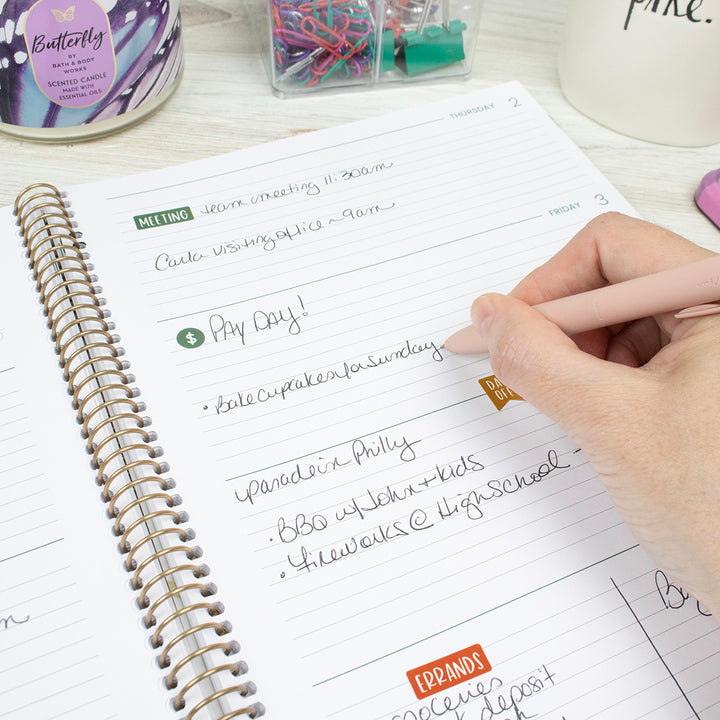 Butterfly
BY
BATH & BODY
WORKS
SCENTED CANDLE
MADE WITH
ESSENTIAL OILS
THURSDAY 2
MEETING team meeting 11:30am
Carla visiting office ~ 9am
FRIDAY 3
$ PAY DAY!
• Bake cupcakes for Sunday
parade in Philly
• BBQ w/ John + kids
• Fireworks @ High School -
ERRANDS
groceries
deposit